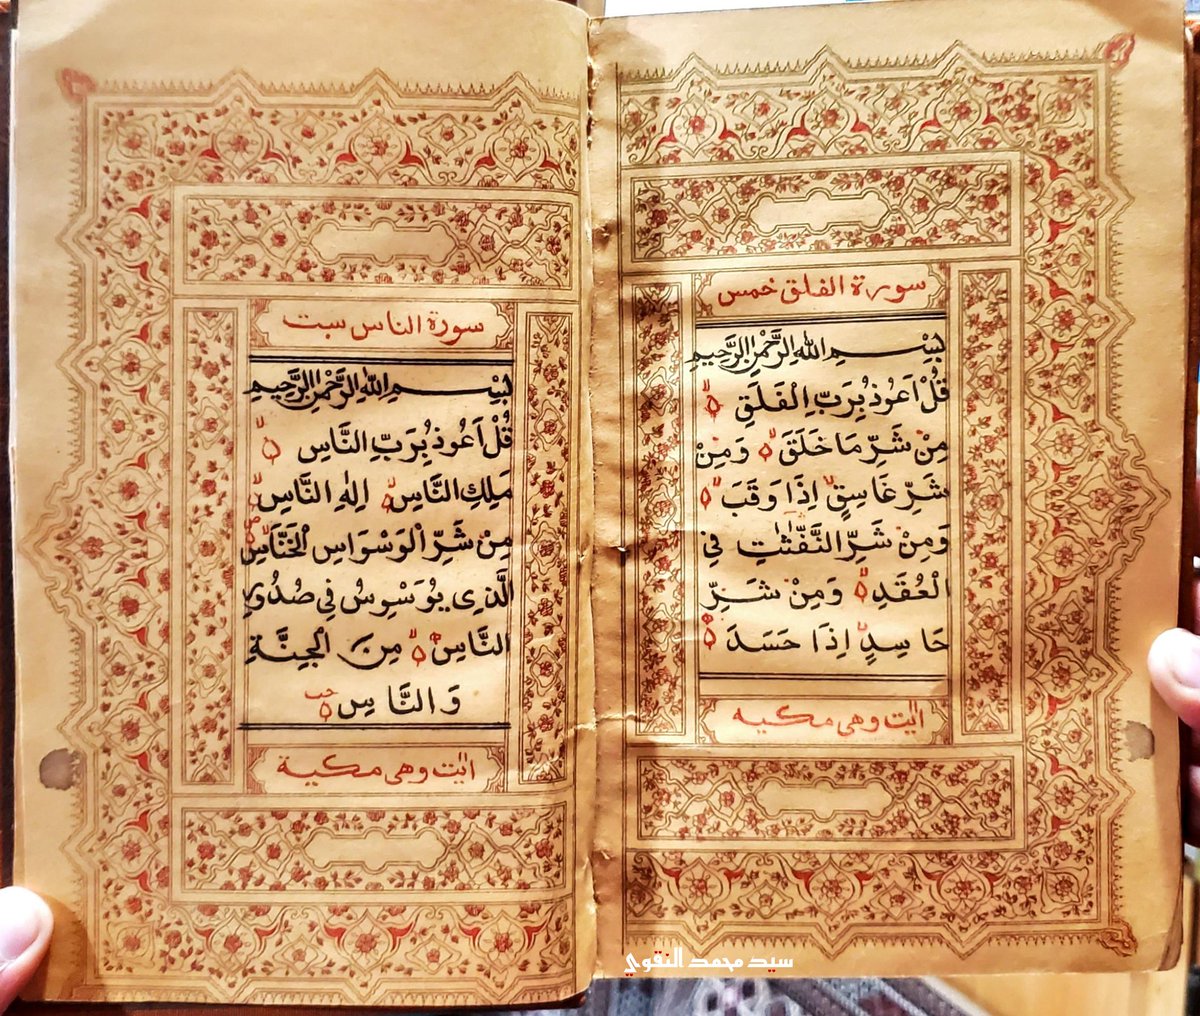 سورة الفلق خمس
بِسْمِ اللهِ الرَّحْمٰنِ الرَّحِيمِ
قُلْ اَعُوذُ بِرَبِّ الْفَلَقِ
مِنْ شَرِّ مَا خَلَقَ وَمِنْ
شَرِّ غَاسِقٍ اِذَا وَقَبَ
وَمِنْ شَرِّ النَّفّٰثٰتِ فِي
الْعُقَدِ وَمِنْ شَرِّ
حَاسِدٍ اِذَا حَسَدَ
ايٰت وهى مكية
سورة الناس ست
بِسْمِ اللهِ الرَّحْمٰنِ الرَّحِيمِ
قُلْ اَعُوذُ بِرَبِّ النَّاسِ
مَلِكِ النَّاسِ اِلٰهِ النَّاسِ
مِنْ شَرِّ الْوَسْوَاسِ الْخَنَّاسِ
الَّذِى يُوَسْوِسُ فِي صُدُورِ
النَّاسِ مِنَ الْجِنَّةِ
وَالنَّاسِ
ايٰت وهى مكية
سيد محمد النقوي